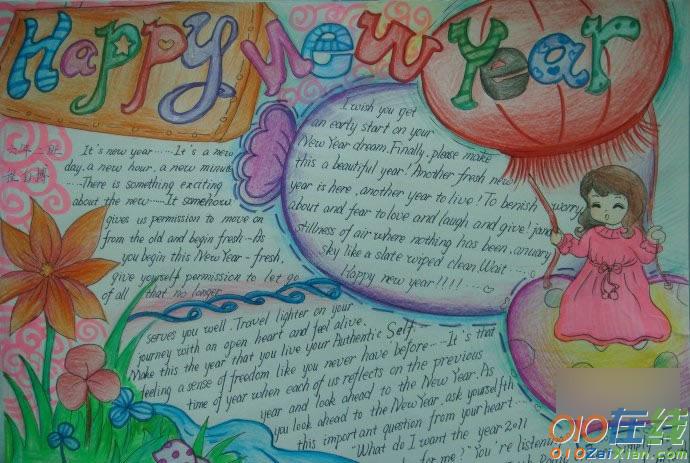 Happy New Year
六年二班
It's new year......It's a new
day, a new hour, a new minute
....There is something exciting
about the new.....It somehow
gives us permission to move on
from the old and begin fresh...As
you begin this New Year - fresh,
give yourself permission to let go
of all that no longer
serves you well. Travel lighter on your
journey with an open heart and feel alive.
Make this the year that you live your Authentic Self
feeling a sense of freedom like you never have before.....It's that
time of year when each of us reflects on the previous
year and look ahead to the New Year. As
you look ahead to the New Year, ask yourselfth
this important question from your heart....
"What do I want the year 2011
for me?" You're listening
I wish you get
an early start on your
New Year dream. Finally, please make
this a beautiful year! Another fresh new
year is here, another year to live! To benish worry
about and fear to love and laugh and give! january
stillness of air where nothing has been,
sky like a slate wiped clean. Wait.....
Happy new year!!!!....
010在线
010zaiXian.com